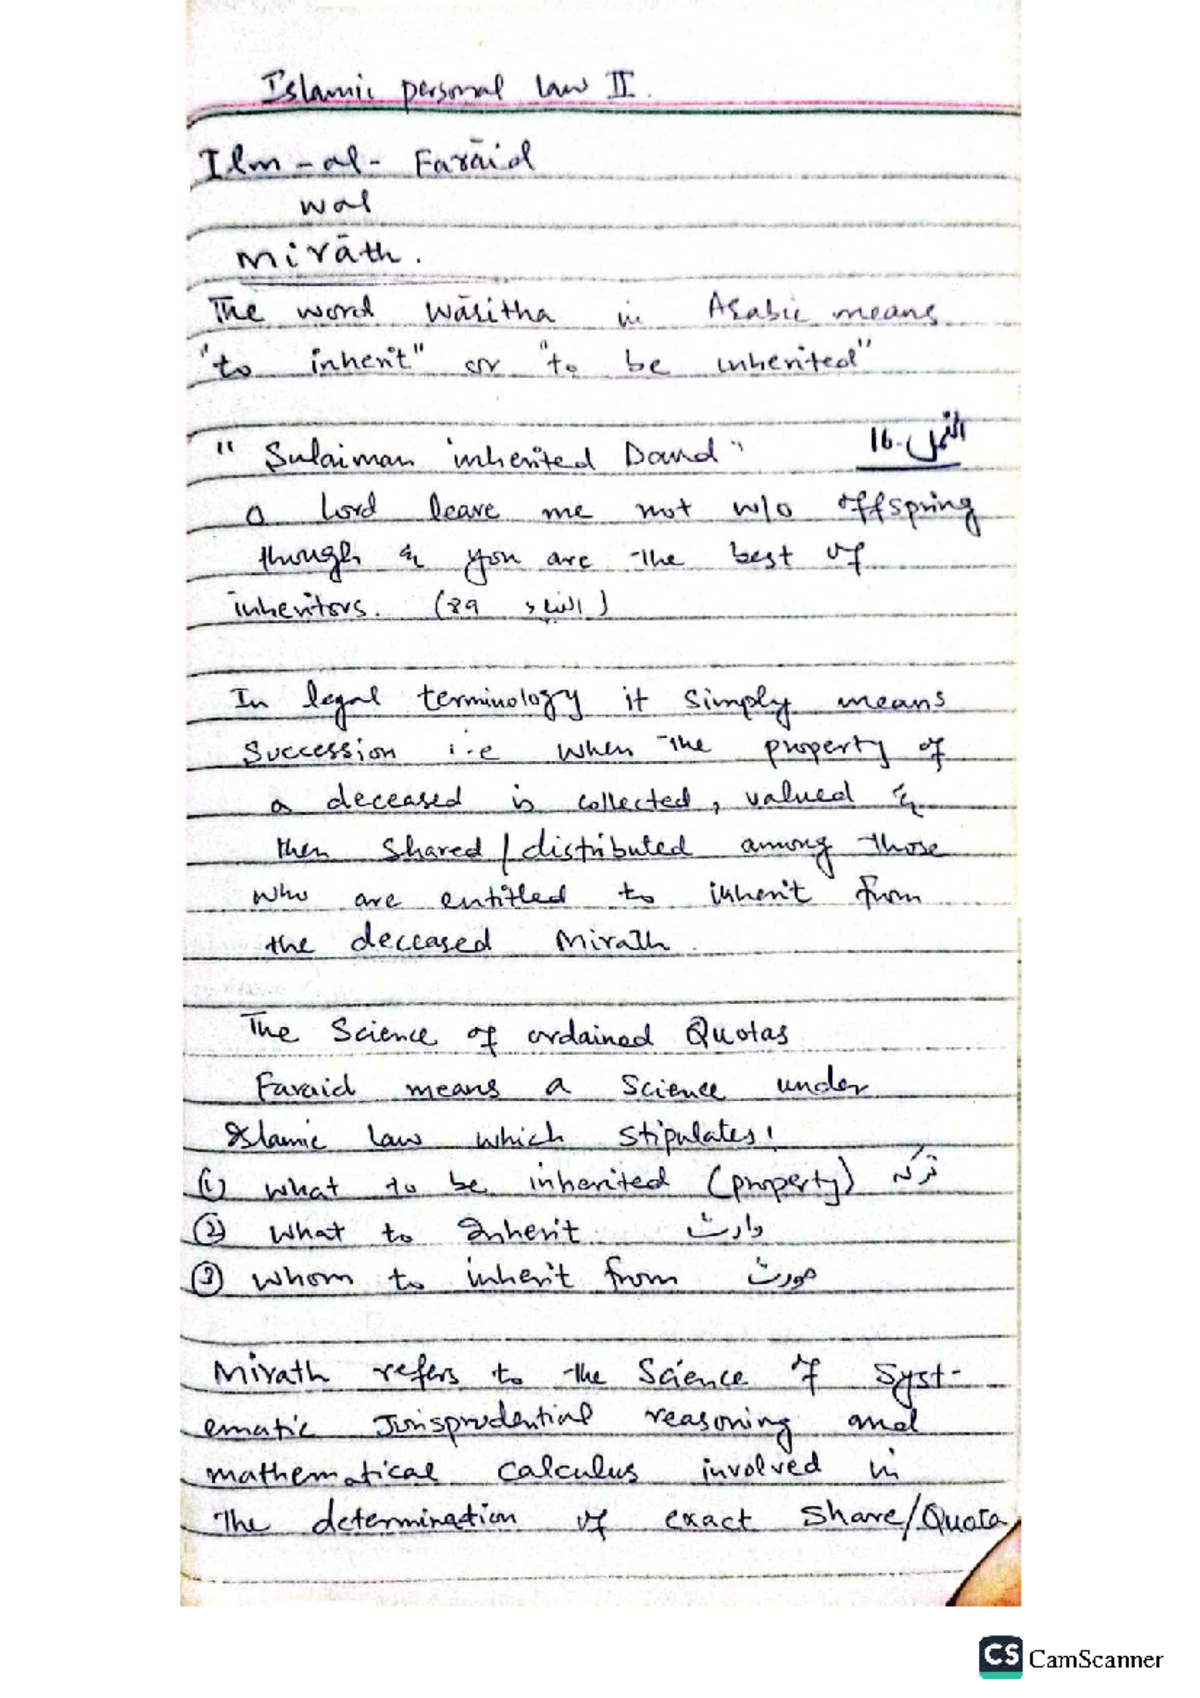 Islamic personal law II.
Ilm-al- Farāid
wal
mirāth.
The word Wāritha in Arabic means
"to inherit" or "to be inherited"
"Sulaiman inherited Daud" النمل.16
O Lord leave me not w/o offspring
though & you are the best of
inheritors. (89
In legal terminology it simply means
Succession i.e when the property of
a deceased is collected, valued &
then shared/distributed among those
who are entitled to inherit from
the deceased Mirath.
The Science of ordained Quotas
Faraid means a Science under
Islamic law which stipulates!
(1) what to be inherited (property) ترکہ
(2) what to Inherit وارث
(3) whom to inherit from مورث
Mirath refers to the Science of Syst-
ematic Jurisprudential reasoning and
mathematical calculus involved in
The determination of exact Share/Quota
CS CamScanner